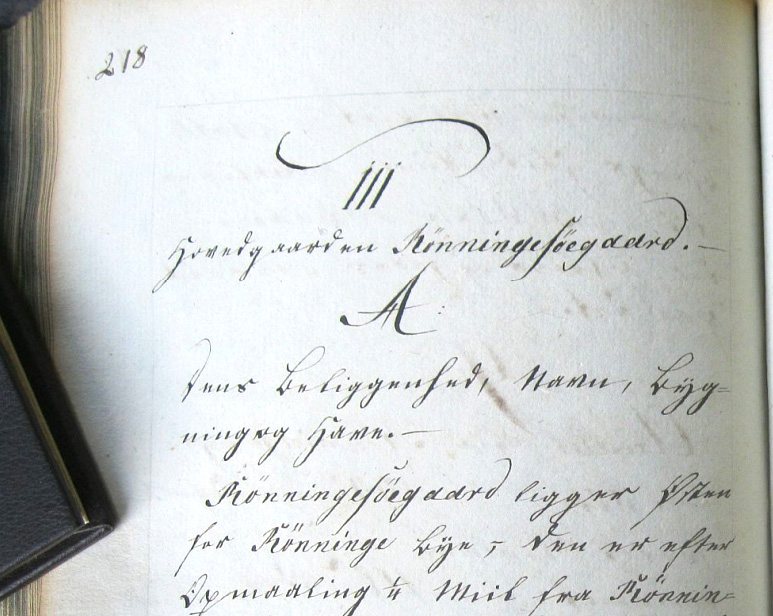 218
III
Hovedgaarden Rønningesøegaard.—
A
Dens Beliggenhed, Navn, Byg=
ning og Have.—
Rønningesøegaard ligger Østen
for Rønninge Bye, den er efter
Opmaaling ¼ Miil fra Rønnin=